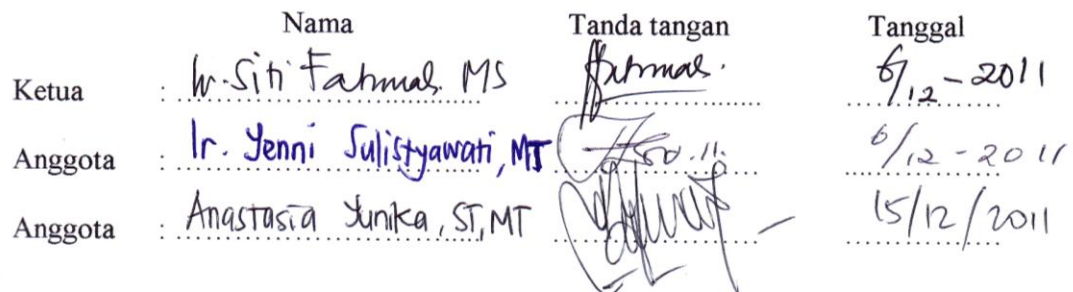 Nama Tanda tangan Tanggal
Ketua : Ir. Siti Fatimah. MS 6/12 - 2011
Anggota : Ir. Yenni Sulistyawati, MT 6/12 - 2011
Anggota : Anastasia Yunika, ST, MT 15/12/2011